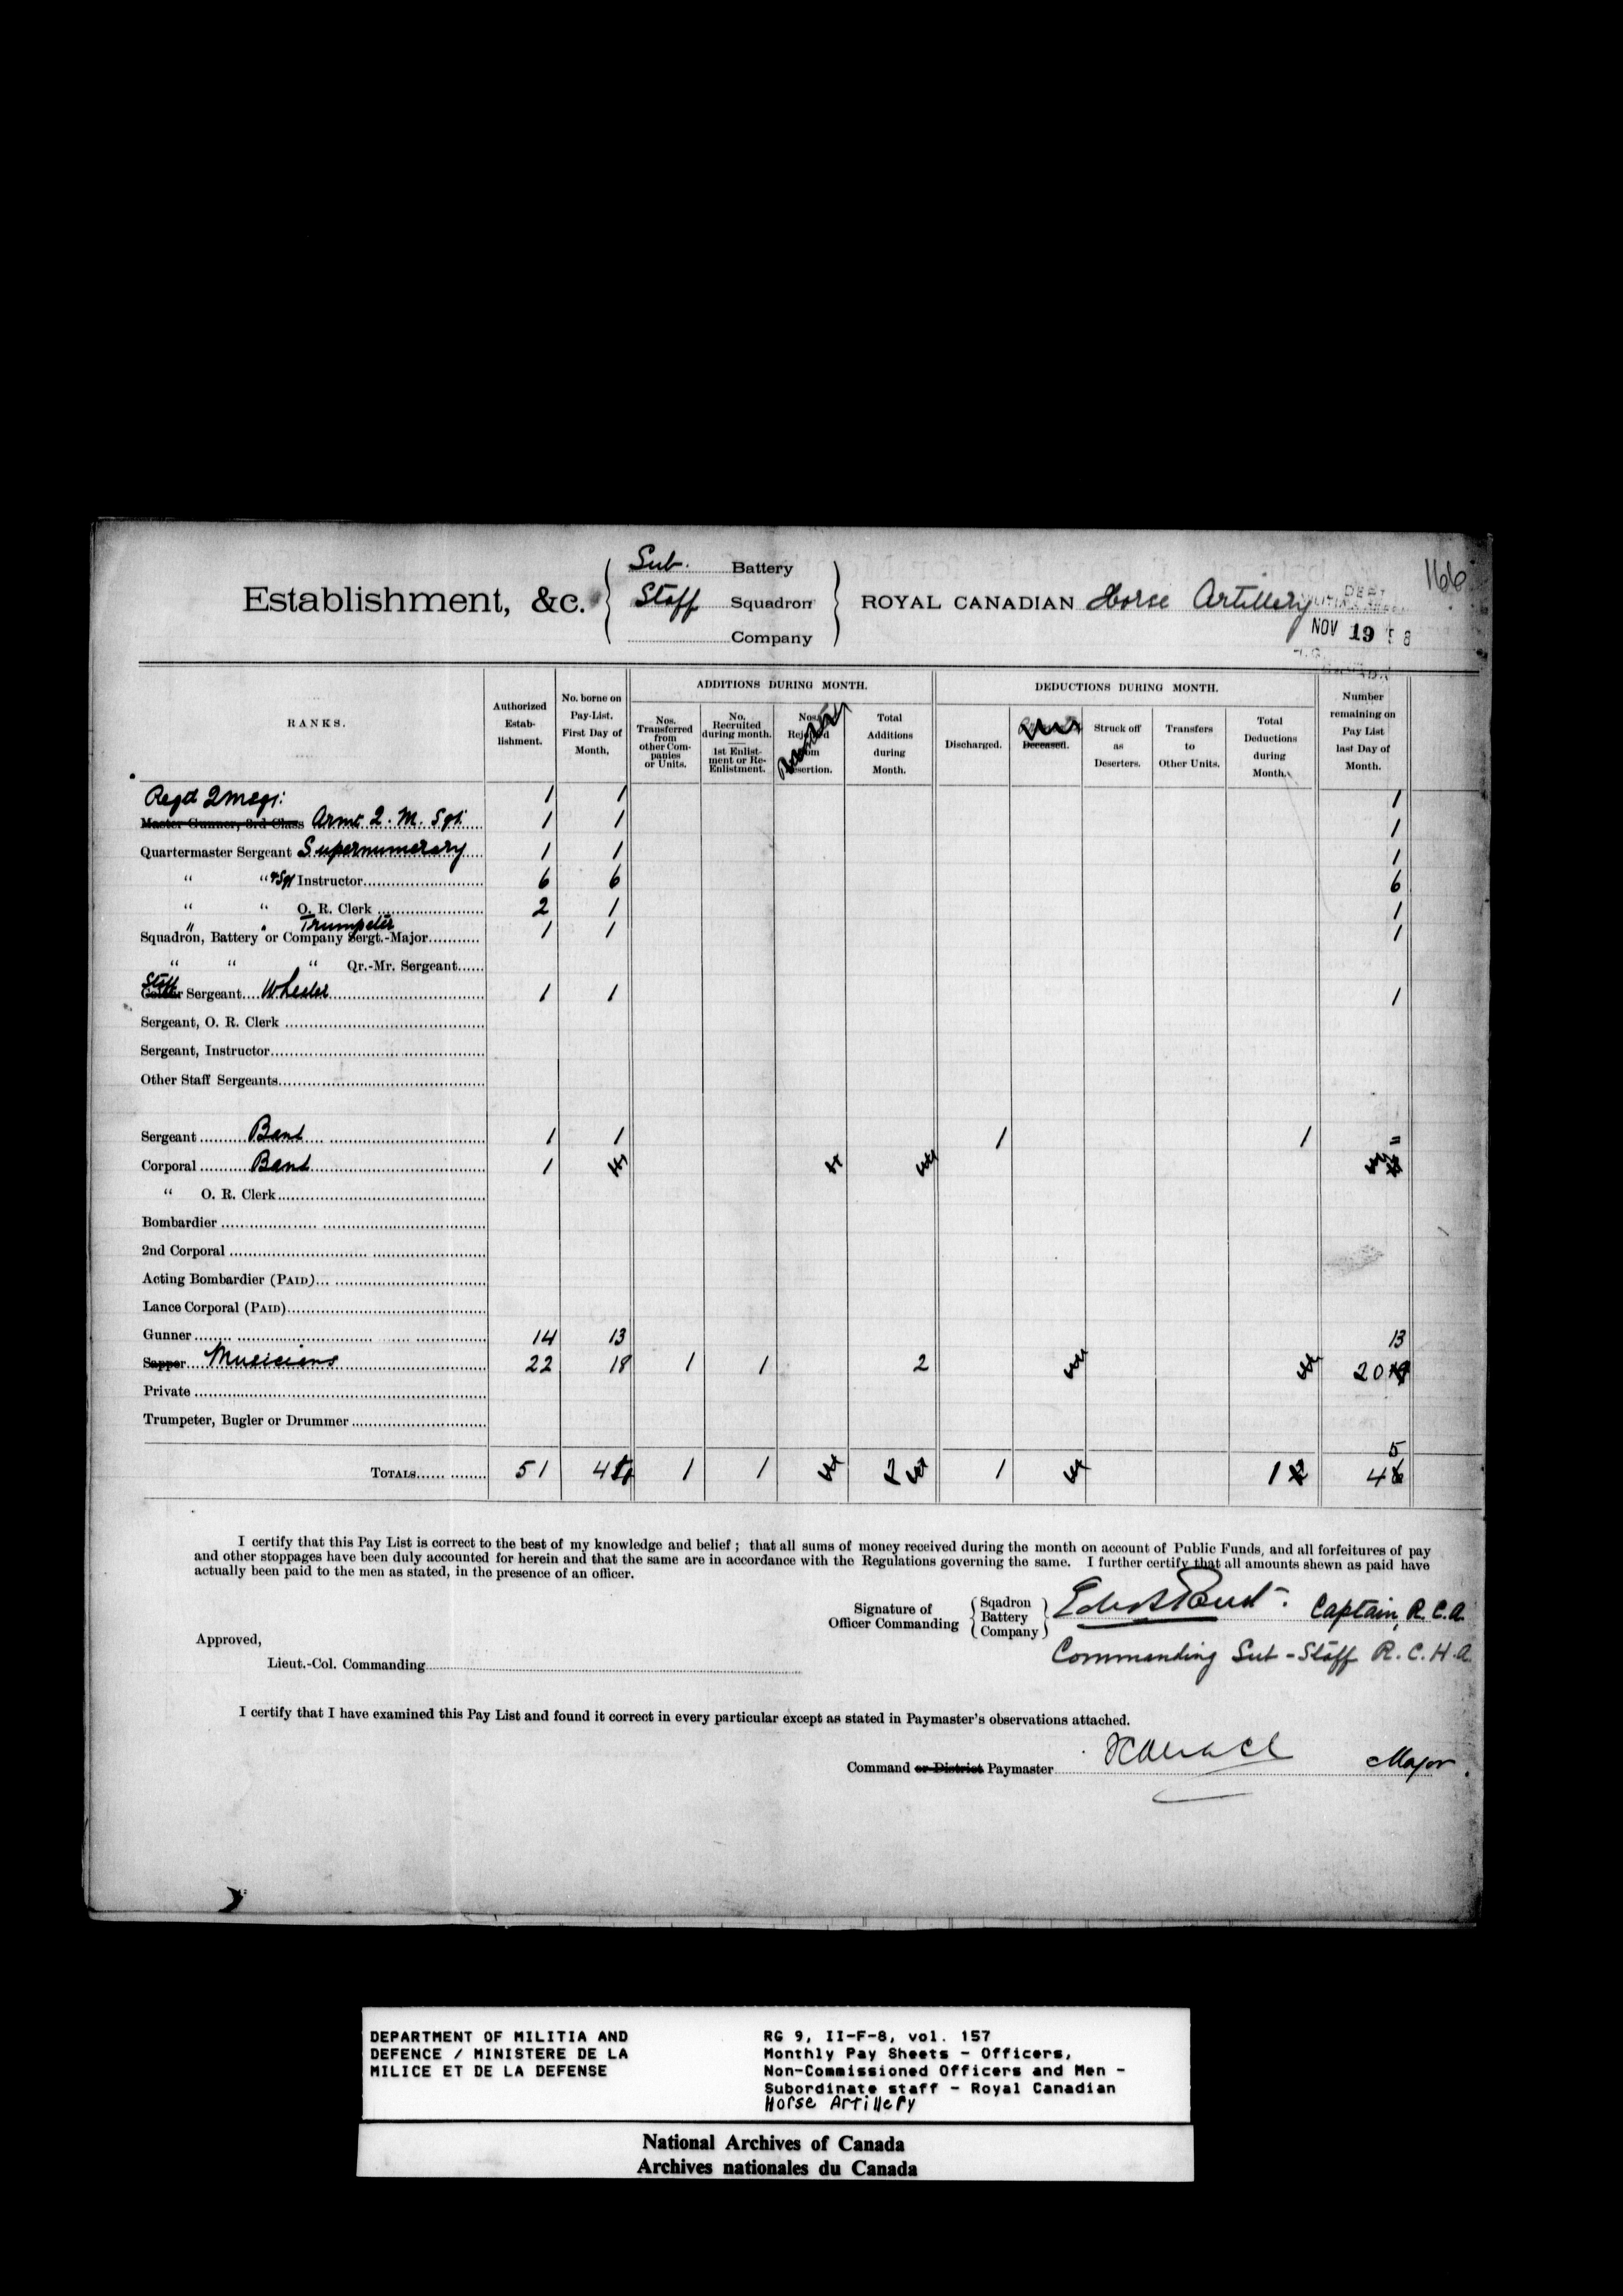 166
Sub. Battery
Establishment, &c. Staff Squadron ROYAL CANADIAN Horse Artillery
Company
NOV 19
ADDITIONS DURING MONTH.
DEDUCTIONS DURING MONTH.
RANKS.
Authorized Estab-lishment.
No. borne on Pay-List. First Day of Month,
Nos. Transferred from other Com-panies or Units.
No. Recruited during month. 1st Enlist-ment or Re-Enlistment.
Nos. Rejoined from Desertion.
Total Additions during Month.
Discharged.
Deceased.
Struck off as Deserters.
Transfers to Other Units.
Total Deductions during Month.
Number remaining on Pay List last Day of Month.
Regtl 2 1 1 1
Master Gunner, 3rd Class Armt 2. M. Sgt. 1 1 1
Quartermaster Sergeant Supernumerary 1 1 1
" " Sgt Instructor 6 6 6
" " O. R. Clerk 2 1 1
" " Trumpeter 1 1 1
Squadron, Battery or Company Sergt.-Major
" " " Qr.-Mr. Sergeant
Staff Colour Sergeant Wheeler 1 1 1
Sergeant, O. R. Clerk
Sergeant, Instructor
Other Staff Sergeants
Sergeant Band 1 1 1 1 =
Corporal Band 1
" O. R. Clerk
Bombardier
2nd Corporal
Acting Bombardier (PAID)
Lance Corporal (PAID)
Gunner 14 13 13
Sapper Musicians 22 18 1 1 2 20
Private
Trumpeter, Bugler or Drummer
TOTALS 51 4 1 1 2 1 1 45
I certify that this Pay List is correct to the best of my knowledge and belief ; that all sums of money received during the month on account of Public Funds, and all forfeitures of pay
and other stoppages have been duly accounted for herein and that the same are in accordance with the Regulations governing the same. I further certify that all amounts shewn as paid have
actually been paid to the men as stated, in the presence of an officer.
Signature of Officer Commanding
Sqadron
Battery
Company
Captain, R.C.A.
Commanding Sub-Staff R.C.H.A.
Approved,
Lieut.-Col. Commanding
I certify that I have examined this Pay List and found it correct in every particular except as stated in Paymaster's observations attached.
Command or District Paymaster Major
DEPARTMENT OF MILITIA AND
DEFENCE / MINISTERE DE LA
MILICE ET DE LA DEFENSE
RG 9, II-F-8, vol. 157
Monthly Pay Sheets - Officers,
Non-Commissioned Officers and Men -
Subordinate staff - Royal Canadian
Horse Artillery
National Archives of Canada
Archives nationales du Canada